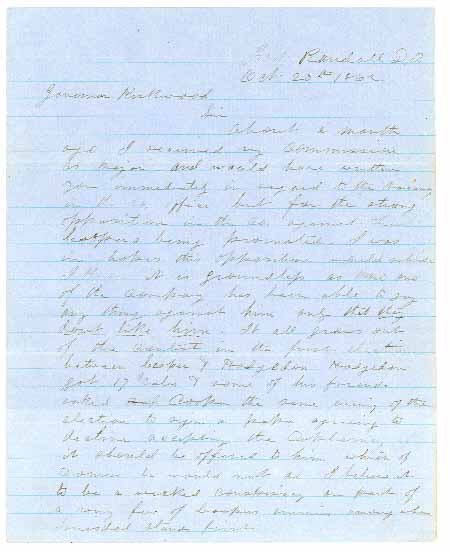 Randall D.T.
Oct. 20th 1862
Governor Kirkwood
Sir
About a month
ago I received my Commission
as Major and would have written
you immediately in regard to the
in the co. office but for the strong
opposition in the co. against
being promoted. I was
in hopes this opposition would subside
It is groundless as no one
of the Company has been able to say
any thing against him only that they
dont like him. It all grows out
of the contest in the first election
between Cooper & Hodgedon Hodgedon
got 17 votes & some of his friends
asked Cooper the same evening of the
election to sign a paper agreeing to
decline accepting the Captaincy if
it should be offered to him which of
course he would not do. I believe it
to be a wicked conspiracy on part of
a very few of Coopers enemies among whom
stands first